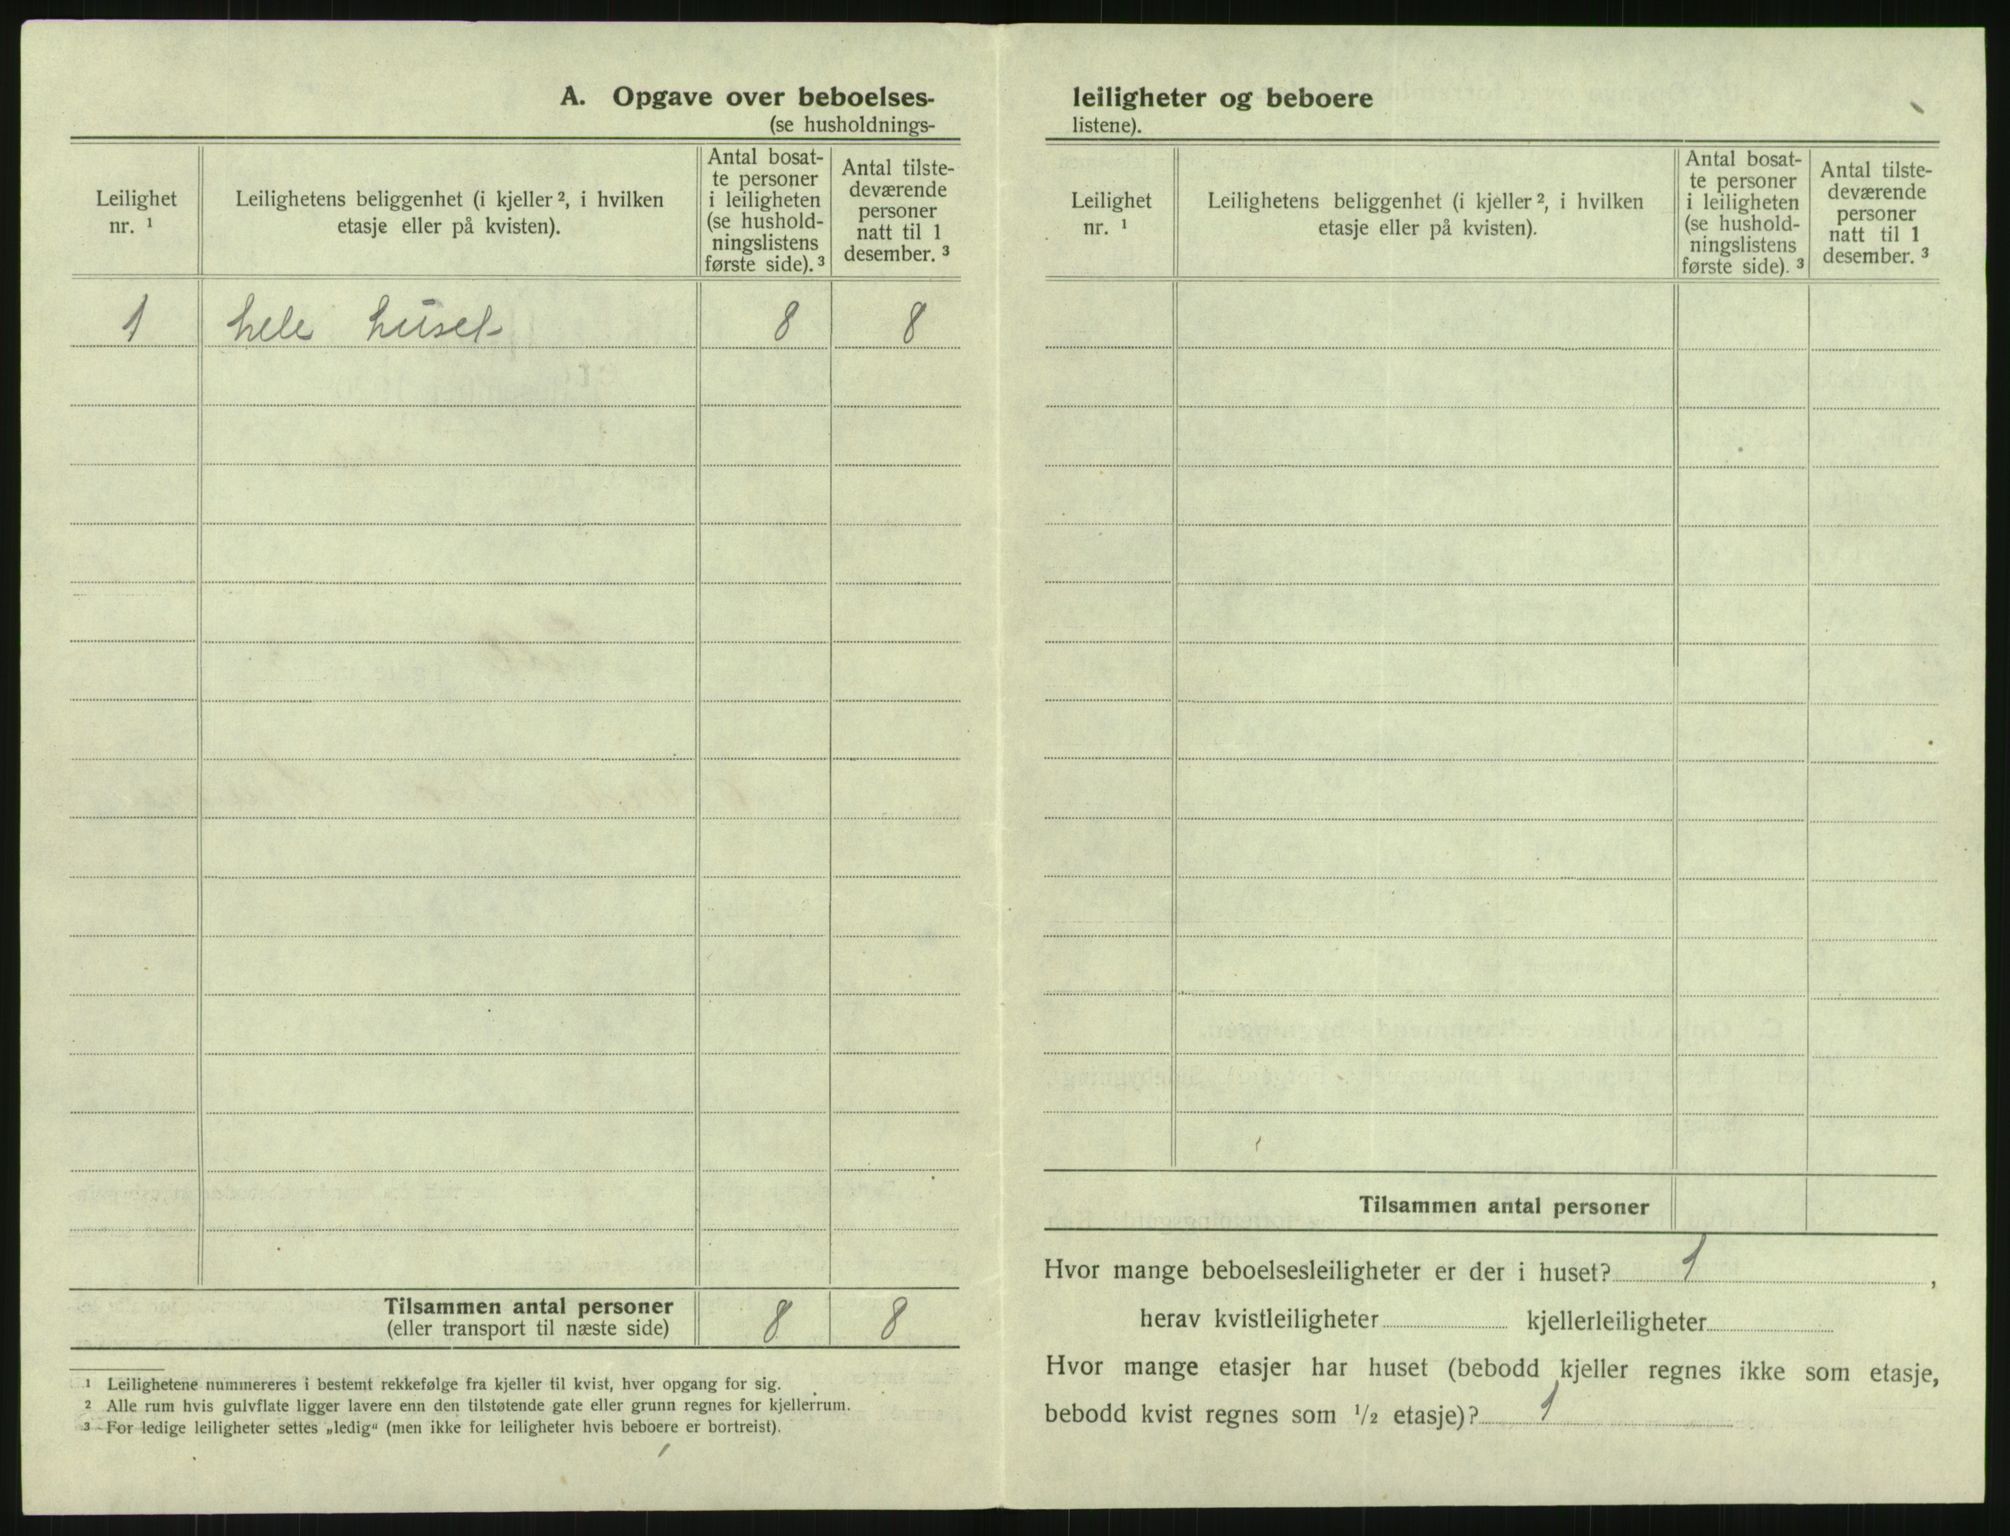 A. Opgave over beboelses-
(se husholdnings-
Leilighet
nr. ¹
Leilighetens beliggenhet (i kjeller ², i hvilken
etasje eller på kvisten).
Antal bosat-
te personer
i leiligheten
(se hushold-
ningslistens
første side). ³
Antal tilste-
deværende
personer
natt til 1
desember. ³
1 hele huset 8 8
Tilsammen antal personer 8 8
(eller transport til næste side)
¹ Leilighetene nummereres i bestemt rekkefølge fra kjeller til kvist, hver opgang for sig.
² Alle rum hvis gulvflate ligger lavere enn den tilstøtende gate eller grunn regnes for kjellerrum.
³ For ledige leiligheter settes „ledig“ (men ikke for leiligheter hvis beboere er bortreist).
leiligheter og beboere
listene).
Leilighet
nr. ¹
Leilighetens beliggenhet (i kjeller ², i hvilken
etasje eller på kvisten).
Antal bosat-
te personer
i leiligheten
(se hushold-
ningslistens
første side). ³
Antal tilste-
deværende
personer
natt til 1
desember. ³
Tilsammen antal personer
Hvor mange beboelsesleiligheter er der i huset? 1 ,
herav kvistleiligheter kjellerleiligheter
Hvor mange etasjer har huset (bebodd kjeller regnes ikke som etasje,
bebodd kvist regnes som ½ etasje)? 1